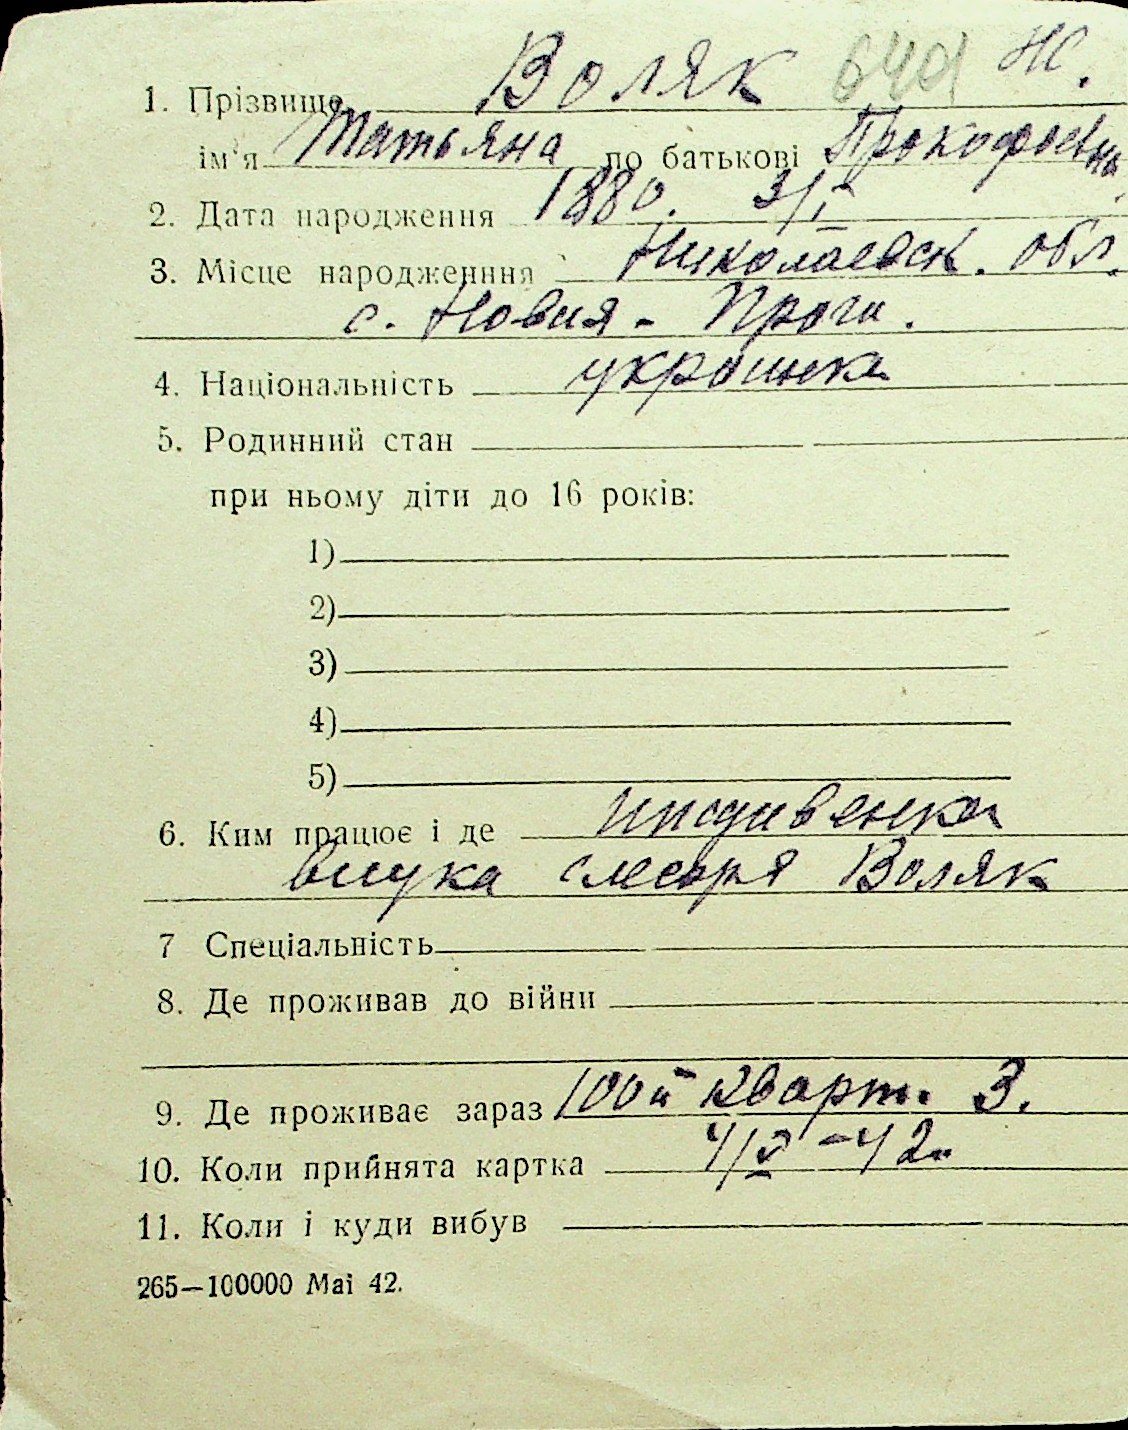 1. Прізвище Воляк 640 Ж.
ім'я Татьяна по батькові Прокофьевна
2. Дата народження 1880. 3/I
3. Місце народженння Николаевск. обл.
с. Новия - Проги.
4. Національність украинка
5. Родинний стан
при ньому діти до 16 років:
1)
2)
3)
4)
5)
6. Ким працює і де иждивенка
внука слесаря Воляк
7 Спеціальність
8. Де проживав до війни
9. Де проживає зараз 100й кварт. 3.
10. Коли прийнята картка 4/V - 42.
11. Коли і куди вибув
265—100000 Mai 42.